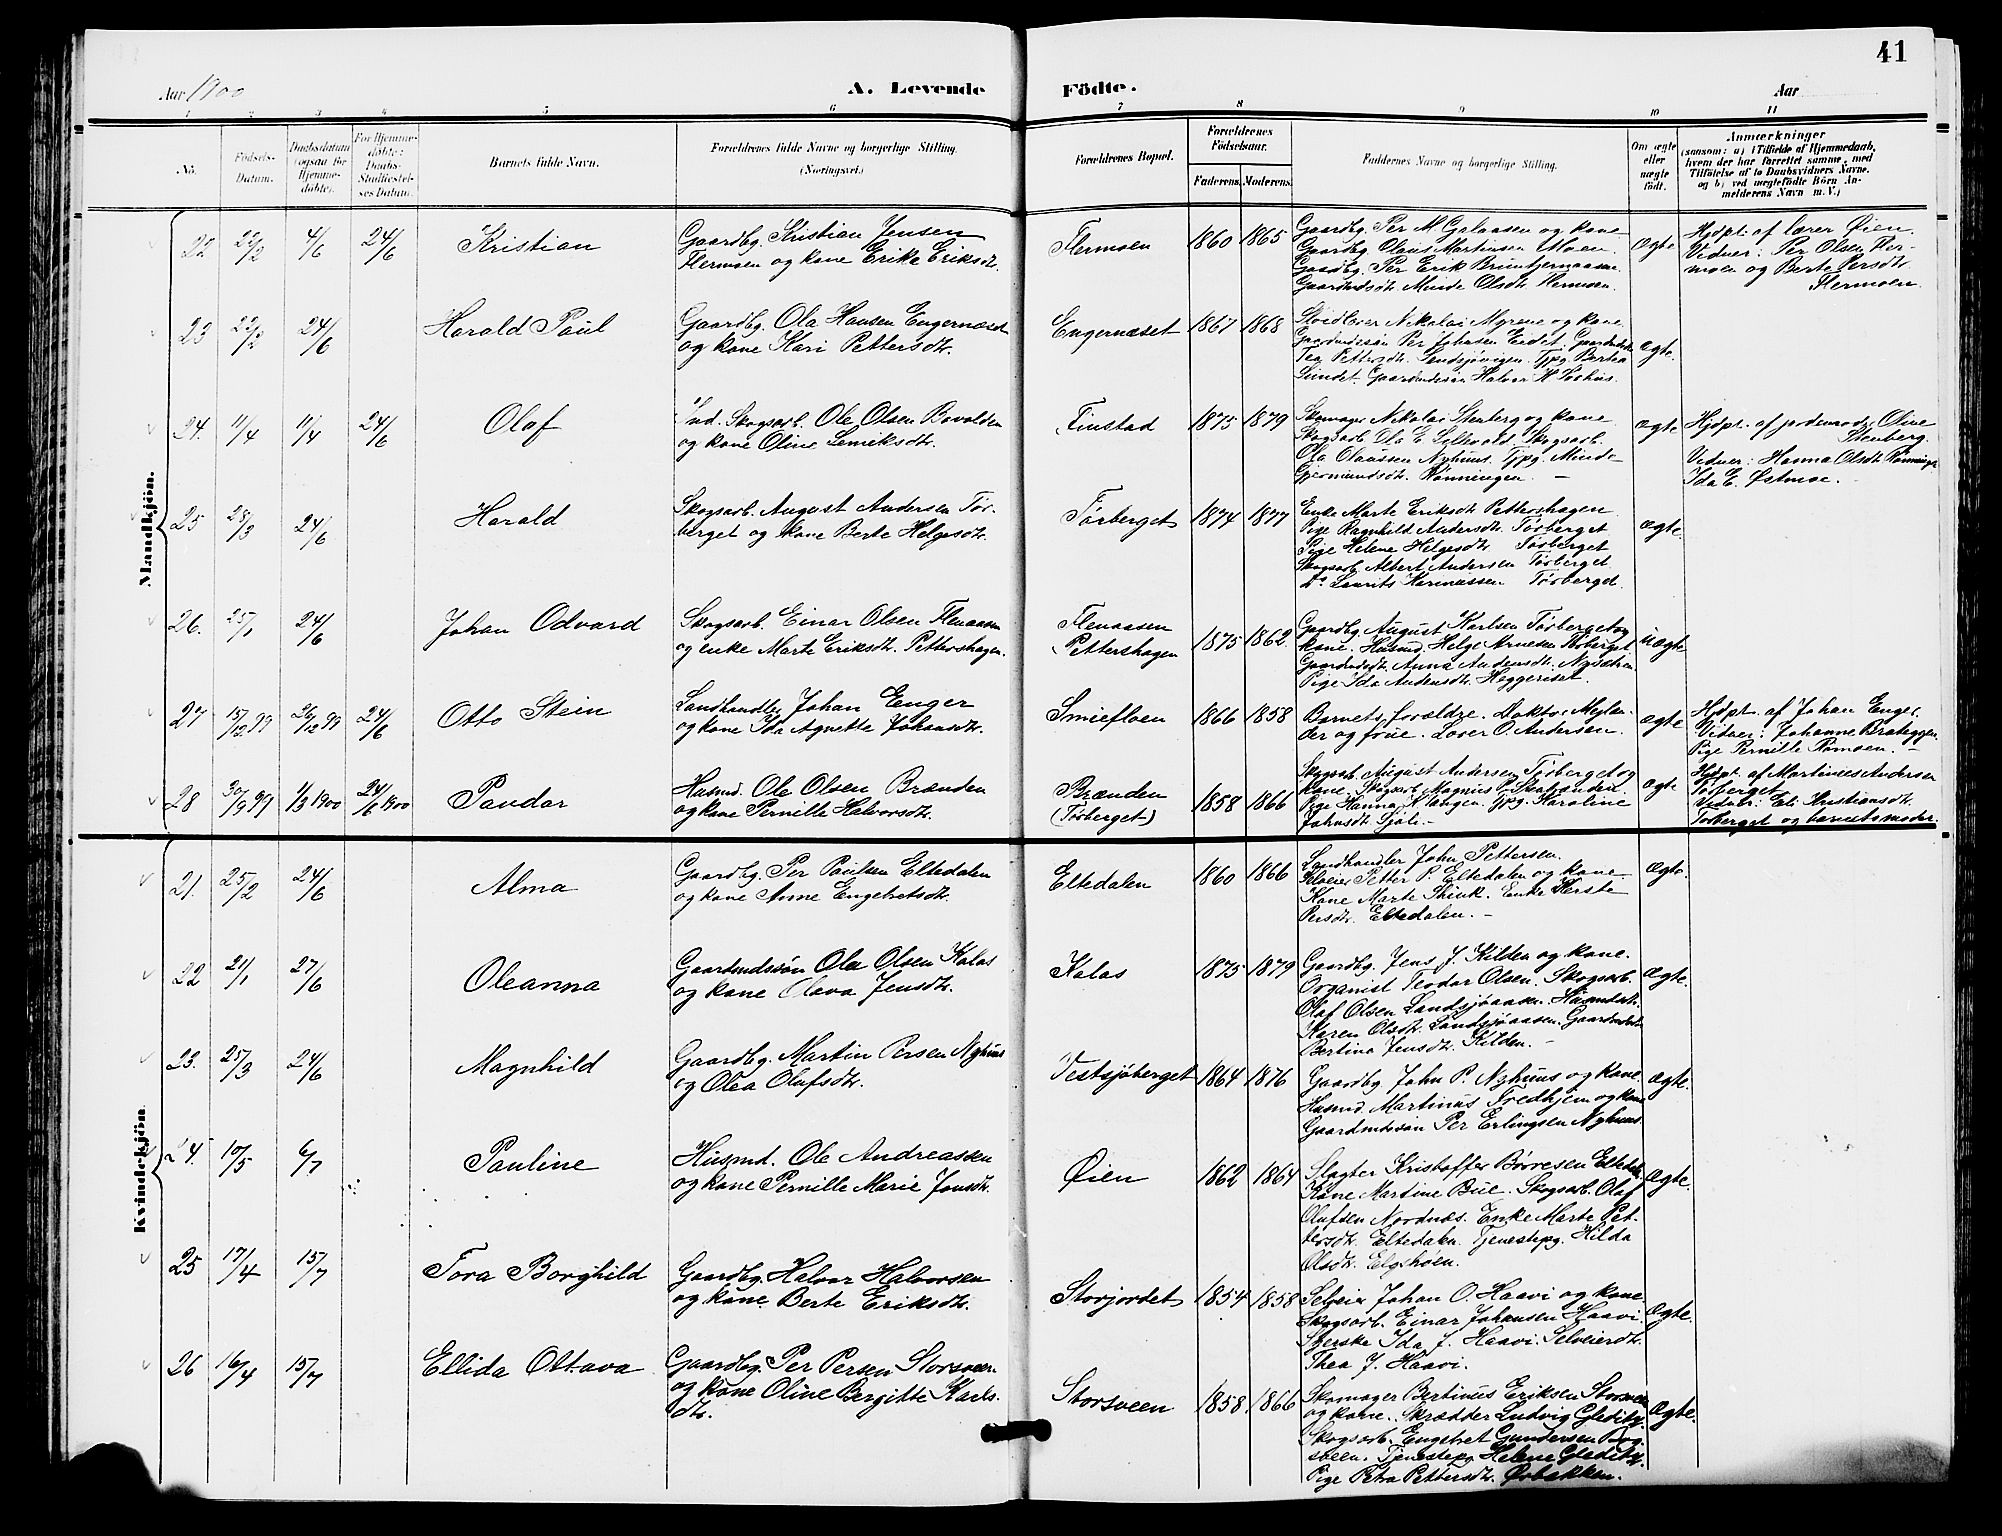 41
Aar 1900
A. Levende
Födte.
Aar
1 2 3 4 5 6 7 8 9 10 11
No.
Födsels-
Datum.
Daabsdatum
(ogsaa for
Hjemme-
döbte).
For Hjemme-
döbte:
Daabs-
Stadfæstel-
ses Datum.
Barnets fulde Navn.
Forældrenes fulde Navne og borgerlige Stilling.
(Næringsvei.)
Forældrenes Bopæl.
Forældrenes
Födselsaar.
Faderens. Moderens.
Faddernes Navne og borgerlige Stilling.
Om ægte
eller
uægte
födt.
Anmærkninger
(saasom: a) i Tilfælde af Hjemmedaab,
hvem der har forrettet samme, med
Tilföielse af to Daabsvidners Navne.
og b) ved uægtefödte Börn An-
melderens Navn m. V.)
Mandkjön.
22 22/2 4/6 24/6 Kristian
Gaardbg. Kristian Jensen
Flermoen og kone Erika Eriksdtr.
Flermoen 1860 1865
Gaardbg. Per M. Galaasen og kone
Gaardbg. Olaus Martinsen Moen
Gaardbg. Per Erik
Gaardmdsdtr. Minda Olsdtr. Flermoen.
ægte
Hjdpt. af lærer Øien.
Vidner: Per Olsen Fler-
moen og Berte Persdtr.
Flermoen.
23 22/2 24/6 Harald Paul
Gaardbg. Ola Hansen Engernæset
og kone Kari Pettersdtr.
Engernæset 1867 1868
Nikolai Myrene og kone
Gaardmdssøn Per Johnsen Eidet.
Tea Pettersdtr. Tjpg. Berthea
Sundet. Gaardmdssøn Halvor H.
ægte.
24. 11/4 11/4 24/6 Olaf
Ind. Skogsarb. Ole Olsen
og kone Oline Lemiksdtr.
Finstad 1875 1879
Skomager Nikolai Stenberg og kone
Skogsarb. Ola E. Skogsarb.
Ola Olaussen Nyhuus. Tjpg. Minda
Gjermundsdtr. Rønningen. —
ægte
Hjdpt. af jordemoder Oline
Stenberg.
Vidner: Hanna Olsdtr. Rønningen
Ida E. Østmoe. —
25 28/3 24/6 Harald
Skogsarb. August Andersen Tør-
berget og kone Berte Helgesdtr.
Tørberget 1874 1877
Enke Marte Eriksdtr. Pettershagen
Pige Ragnhild Andersdtr. Tørberget
Pige Helene Helgesdtr. Tørberget
Skogsarb. Albert Andersen Tørberget
Do. Laurits Hermansen Tørberget.
ægte.
26. 25/1 24/6 Johan Odvard
Skogsarb. Einar Olsen Flenaasen
og enke Marte Eriksdtr. Pettershagen.
Flenaasen
Pettershagen 1875 1862.
Gaardbg. August Karlsen Tørberget og
kone. Husmd. Helge Arnesen Tørberget
Gaardmdsdtr. Anna Andersdtr. Nysætren
Pige Ida Andersdtr. Heggeriset.
uægte
27 15/12 99 26/12 99 24/6 Otto Stein
Landhandler Johan Enger
og kone Ida Agnette Johansdtr.
Smiefloen 1866 1858
Barnets forældre. Doktor Mylen-
der og frue. Lærer O. Andersen.
ægte
Hjdpt. af Johan Enger.
Vidner: Johanne Brateggen
Pige Pernille Romoen. —
28 30/9 99 1/3 1900 24/6 1900 Pander
Husmd. Ole Olsen Brænden
og kone Pernille Halvorsdtr.
Brænden
(Tørberget) 1858 1866
Skogsarb. August Andersen Tørberget og
kone. Skogsarb. Magnus P.
Pige Hanna H. Tjpg. Karoline
Johnsdtr. Sjøli. —
ægte
Hjdpt. af Martinius Andersen
Tørberget
Vidner: Eli Kristiansdtr.
Tørberget og barnets moder.
Kvindekjön
21. 25/2 24/6 Alma
Gaardbg. Per Paulsen Eltedalen
og kone Anne Engebretsdtr.
Eltedalen 1860 1866
Landhandler John Pettersen.
Selveier Petter P. Eltedalen og kone
Kone Marte Enke Kerste
Persdtr. Eltedalen. —
ægte.
22 21/1 27/6 Oleanna
Gaardmdssøn Ola Olsen Kalas
og kone Olava Jensdtr.
Kalas 1875 1879
Gaardbg. Jens J. Kilden og kone.
Organist Teodor Olsen. Skogsarb.
Olaf Olsen Landsjøaasen. Husmdsdtr.
Karen Olsdtr. Landsjøaasen. Gaardmdsdtr.
Bertina Jensdtr. Kilden. —
ægte.
23. 25/3 24/6 Magnhild
Gaardbg. Martin Persen Nyhuus
og Olea Olafsdtr.
Vestsjøberget 1864 1876
Gaardbg. John P. Nyhuus og kone.
Husmd. Martinus Tredhjem og kone
Gaardmdssøn Per Erlingsen Nyhuus.
ægte.
24. 10/5 6/7 Pauline
Husmd. Ole Andreassen
og kone Pernille Marie Jensdtr.
Øien 1862 1864
Slagter Kristoffer Børresen Eltedalen
Kone Martine Bue. Skogsarb. Olaf
Olafsen Nordnæs. Enke Marte Pet-
tersdtr. Eltedalen. Tjenestepg. Hilda
Olsdtr. Elgshøen.
ægte.
25 17/4 15/7 Tora Borghild
Gaardbg. Halvor Halvorsen
og kone Berte Eriksdtr.
Storjordet 1854 1858
Selveier Johan O. Haavi og kone
Skogsarb. Einar Johansen Haavi.
Syerske Ida J. Haavi. Selveierdtr.
Thea J. Haavi.
ægte.
26 16/4 15/7 Ellida Ottava
Gaardbg. Per Persen Storsveen
og kone Oline Bergitte Karls-
dtr.
Storsveen 1858 1866
Skomager Bertinus Eriksen Storsveen
og kone. Skrædder Ludvig Gleditz.
Skogsarb. Engebret Gundersen
Tjenestepg. Helene Gleditz.
Pige Petra Pettersdtr. Ørbækken.
ægte.